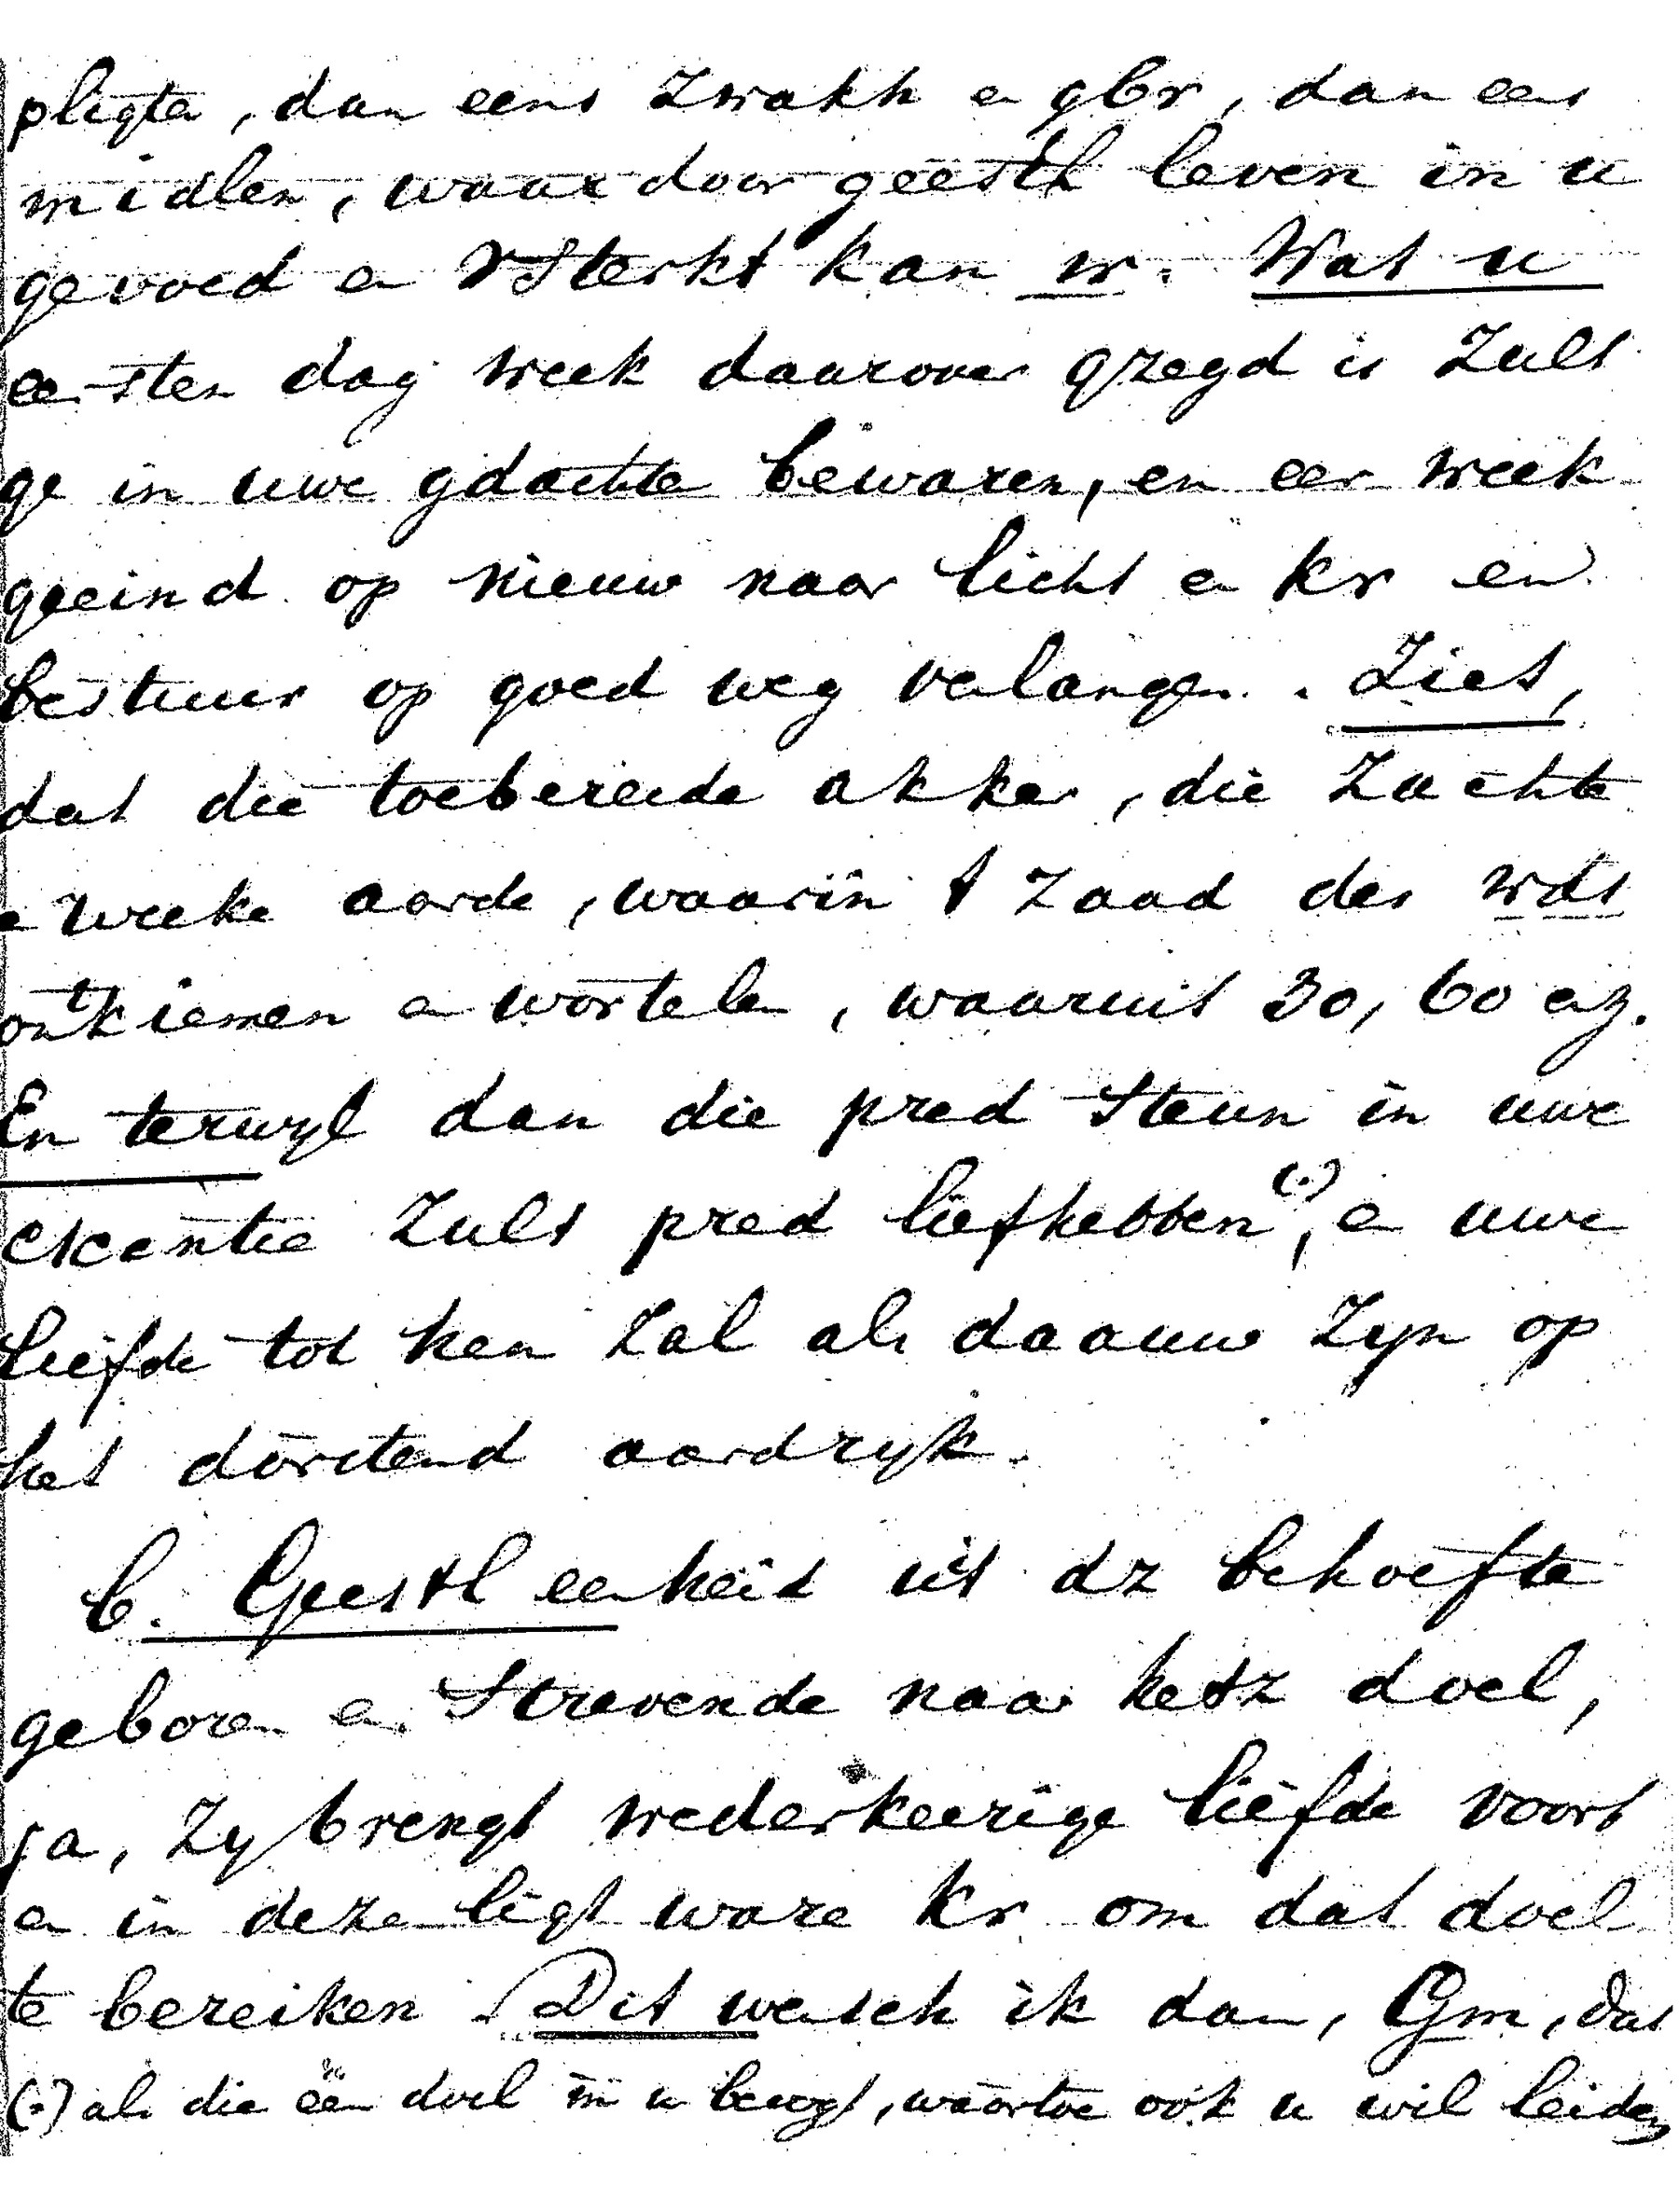 pligten, dan eens zwakh en gbr, dan eens
midlen, waardoor geestl leven in u
gevoed en vsterkt kan w. Wat u
eersten dag week daarover gzegd is zult
ge in uwe gdachte bewaren, en eer week
geeind op nieuw naar licht en kr en
bestuur op goed weg verlangen. Ziet,
dat die toebereide akker, die zachte
en weeke aarde, waarin t zaad des wds
ontkiemen en wortelen, waaruit 30, 60 enz.
En terwyl dan die pred steun in uwe
escentie zult pred liefhebben (.), en uwe
liefde tot hen zal als daauw zyn op
het dorstend aardryk.
C. Geestl eenheid uit dz behoefte
geboren en strevende naar hetz doel,
ja, zy brengt wederkeerige liefde voort
en in deze ligt ware kr om dat doel
te bereiken. Dit wensch ik dan, Gm, dat
(.) als die één doel in u beoogt, waartoe ook u wil leiden